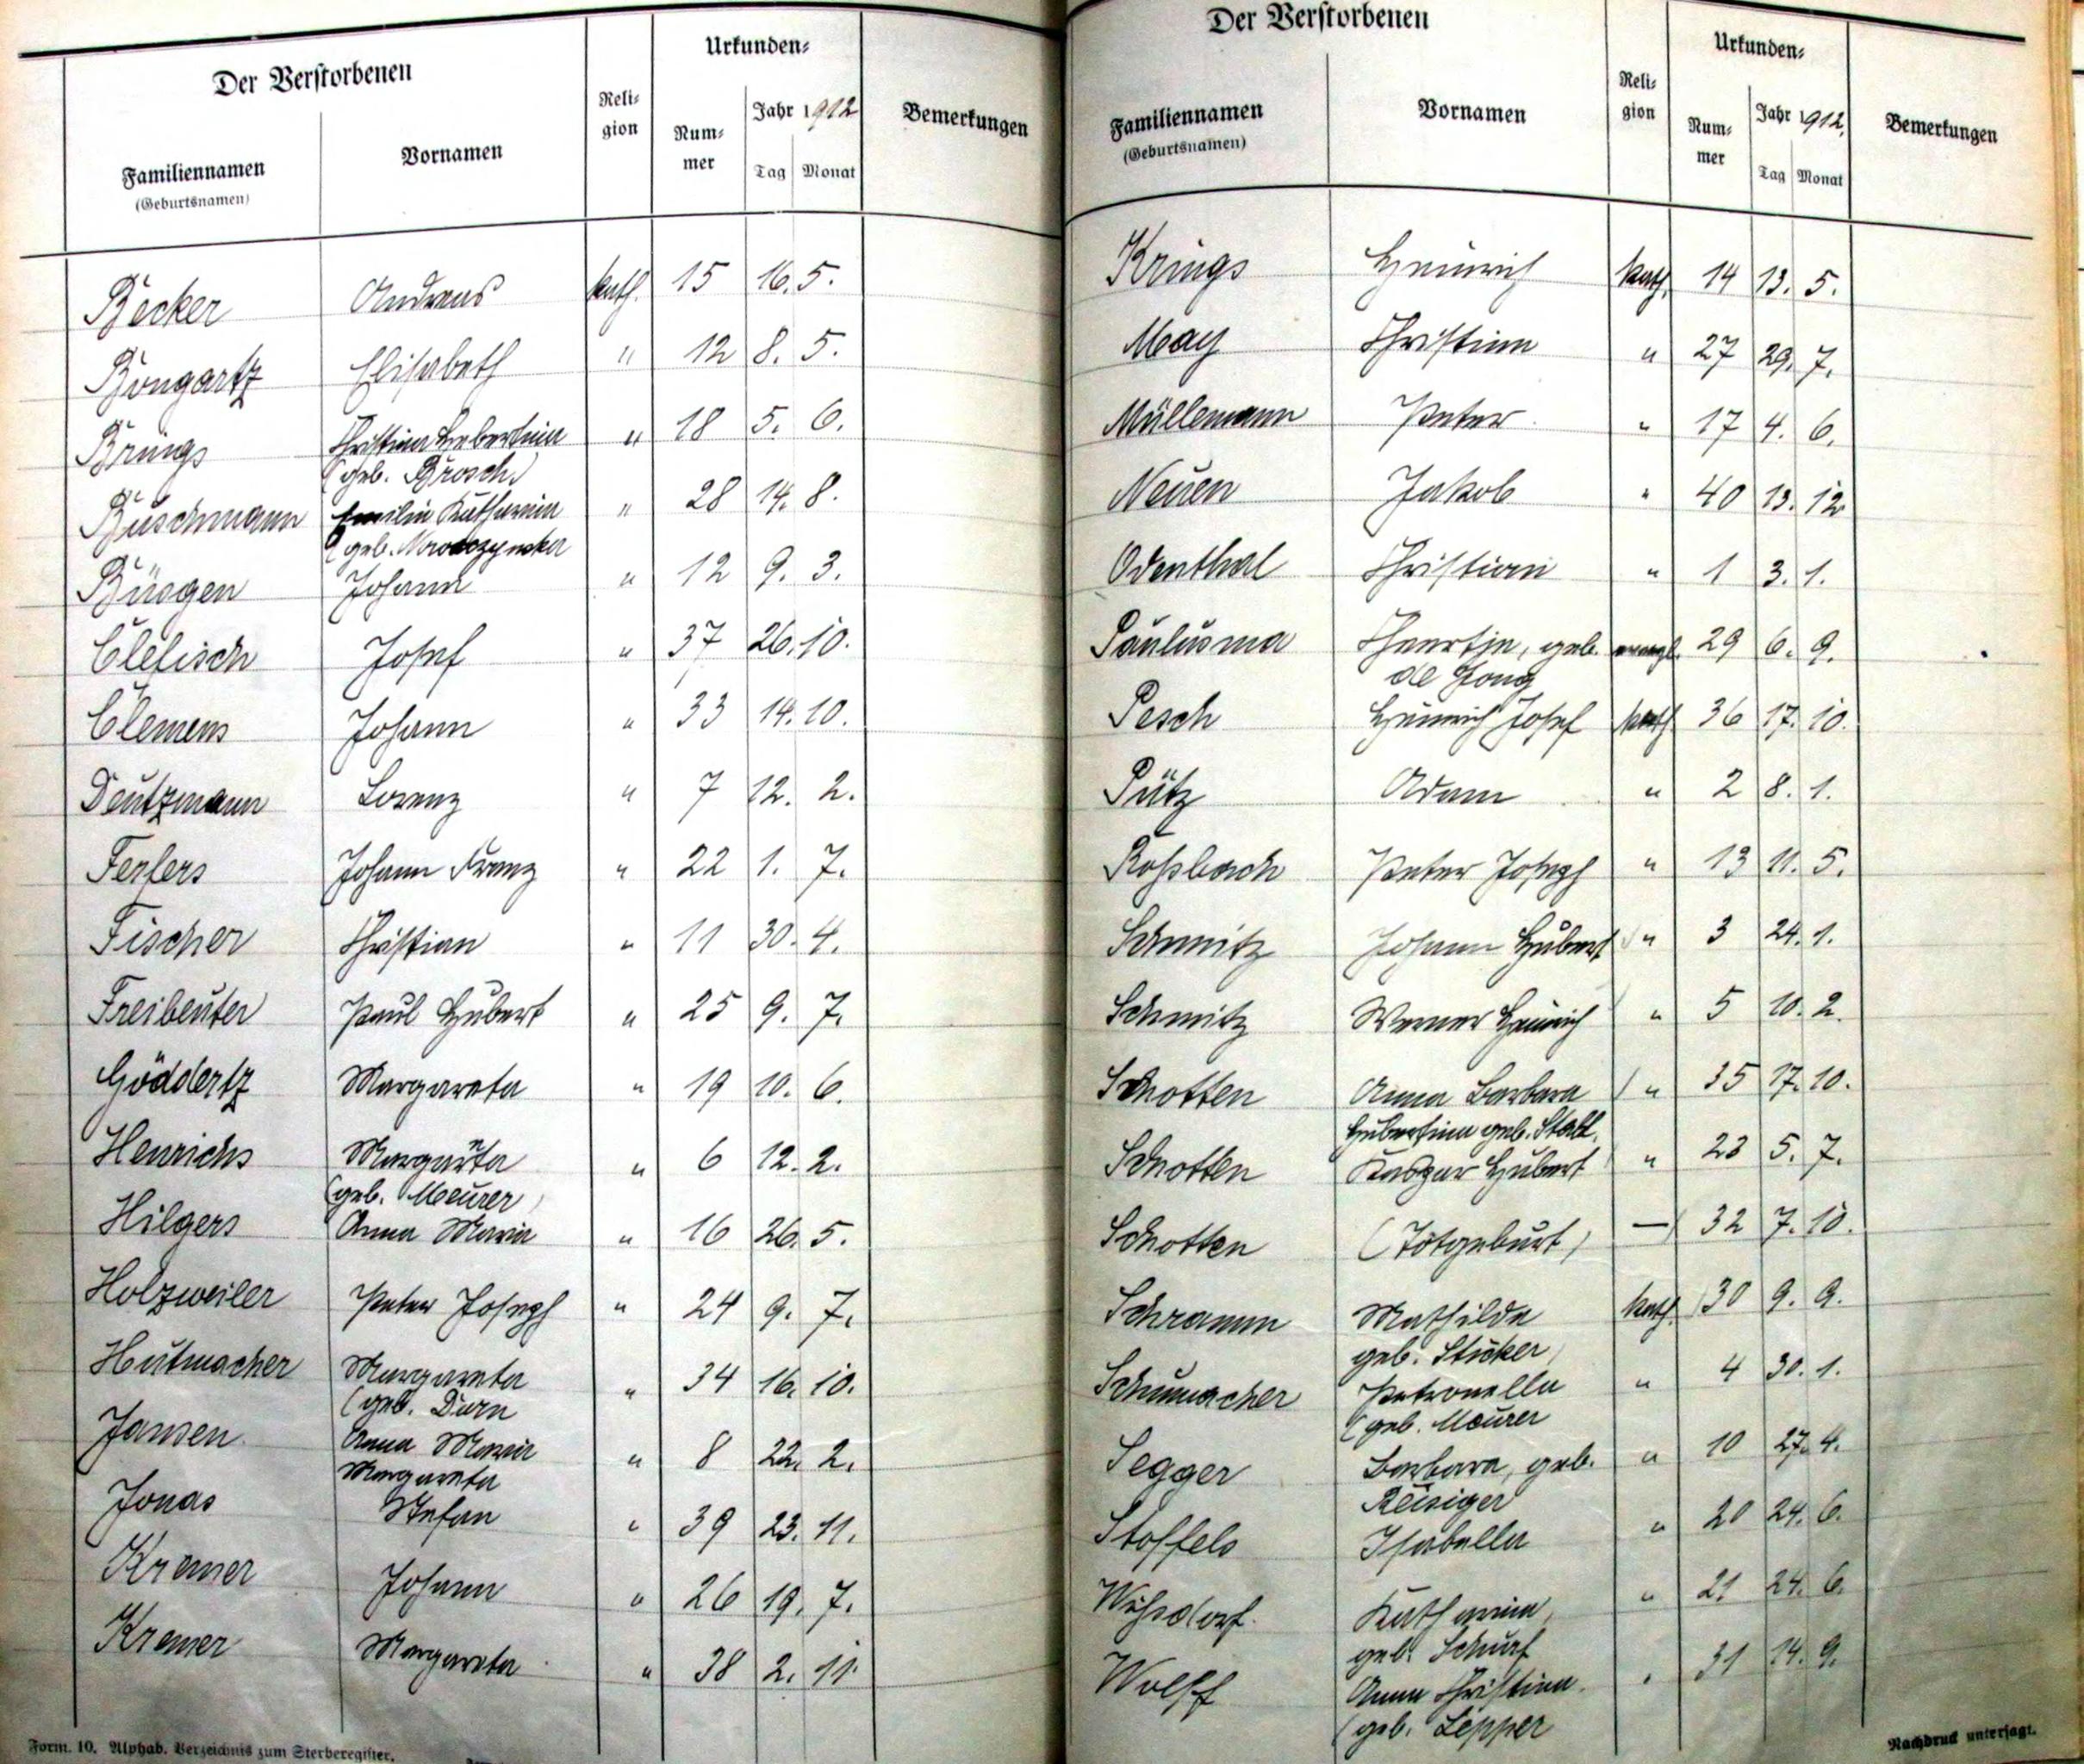 Der Verstorbenen
Urkunden-
Reli-
gion
Familiennamen
(Geburtsnamen)
Vornamen
Num-
mer
Jahr 1912
Tag Monat
Bemerkungen
Becker Andreas kath. 15 16. 5.
Bongartz Elisabeth " 12 8. 5.
Brings Christina Hubertina " 18 5. 6.
(geb. Brosch)
Buschmann Emilie Katharina " 28 14. 8.
(geb.
Büsgen Johann " 12 9. 3.
Clefisch Josef " 37 26. 10.
Clemens Johann " 33 14. 10.
Deutzmann Lorenz " 7 12. 2.
Ferfers Johann Franz " 22 1. 7.
Fischer Christian " 11 30. 4.
Freibeuter Paul Hubert " 25 9. 7.
Göddertz Margareta " 19 10. 6.
Henrichs Margareta " 6 12. 2.
(geb. Meurer)
Hilgers Anna Maria " 16 26. 5.
Holzweiler Peter Joseph " 24 9. 7.
Hutmacher Margareta " 34 16. 10.
(geb. Dürn
Jansen Anna Maria " 8 22. 2.
Margareta
Jonas Stefan " 39 23. 11.
Kremer Johann " 26 19. 7.
Kremer Margareta " 38 2. 11.
Form. 10. Alphab. Verzeichnis zum Sterberegister.
Der Verstorbenen
Urkunden-
Reli-
gion
Familiennamen
(Geburtsnamen)
Vornamen
Num-
mer
Jahr 1912.
Tag Monat
Bemerkungen
Krings Heinrich kath. 14 13. 5.
May Christina " 27 29. 7.
Müllemann Peter " 17 4. 6.
Neuen Jakob " 40 13. 12
Odenthal Christian " 1 3. 1.
Paulusma geb. evangl. 29 6. 9.
de Jong
Pesch Heinrich Josef kath 36 17. 10.
Pütz Adam " 2 8. 1.
Roßbach Peter Joseph " 13 11. 5.
Schmitz Johann Hubert " 3 24. 1.
Schmitz Werner Heinrich " 5 10. 2.
Schotten Anna Barbara " 35 17. 10.
Hubertina geb. Stall.
Schotten Kaspar Hubert " 23 5. 7.
Schotten (Totgeburt) — 32 7. 10.
Schramm Mathilde kath. 30 9. 9.
geb. Stücker
Schumacher Petronella " 4 30. 1.
(geb. Meurer
Segger Barbara, geb. " 10 27. 4.
Reisiger
Stoffels Isabella " 20 24. 6.
Wißdorf. Katharina, " 21 24. 6.
geb. Schurf
Wolff Anna Christina " 31 14. 9.
(geb. Lepper
Nachdruck untersagt.